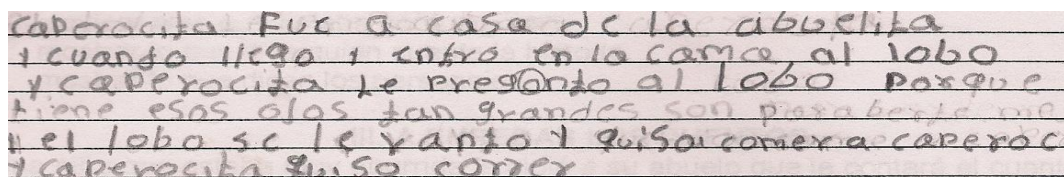 caperocita Fue a casa de la abuelita
y cuando llego y entro en la came al lobo
y caperocita le presonto al lobo porque
tiene esos olos tan grandes son para berte me
y el lobo se le vanto y quiso comer a caperoc
y caperocita quiso correr